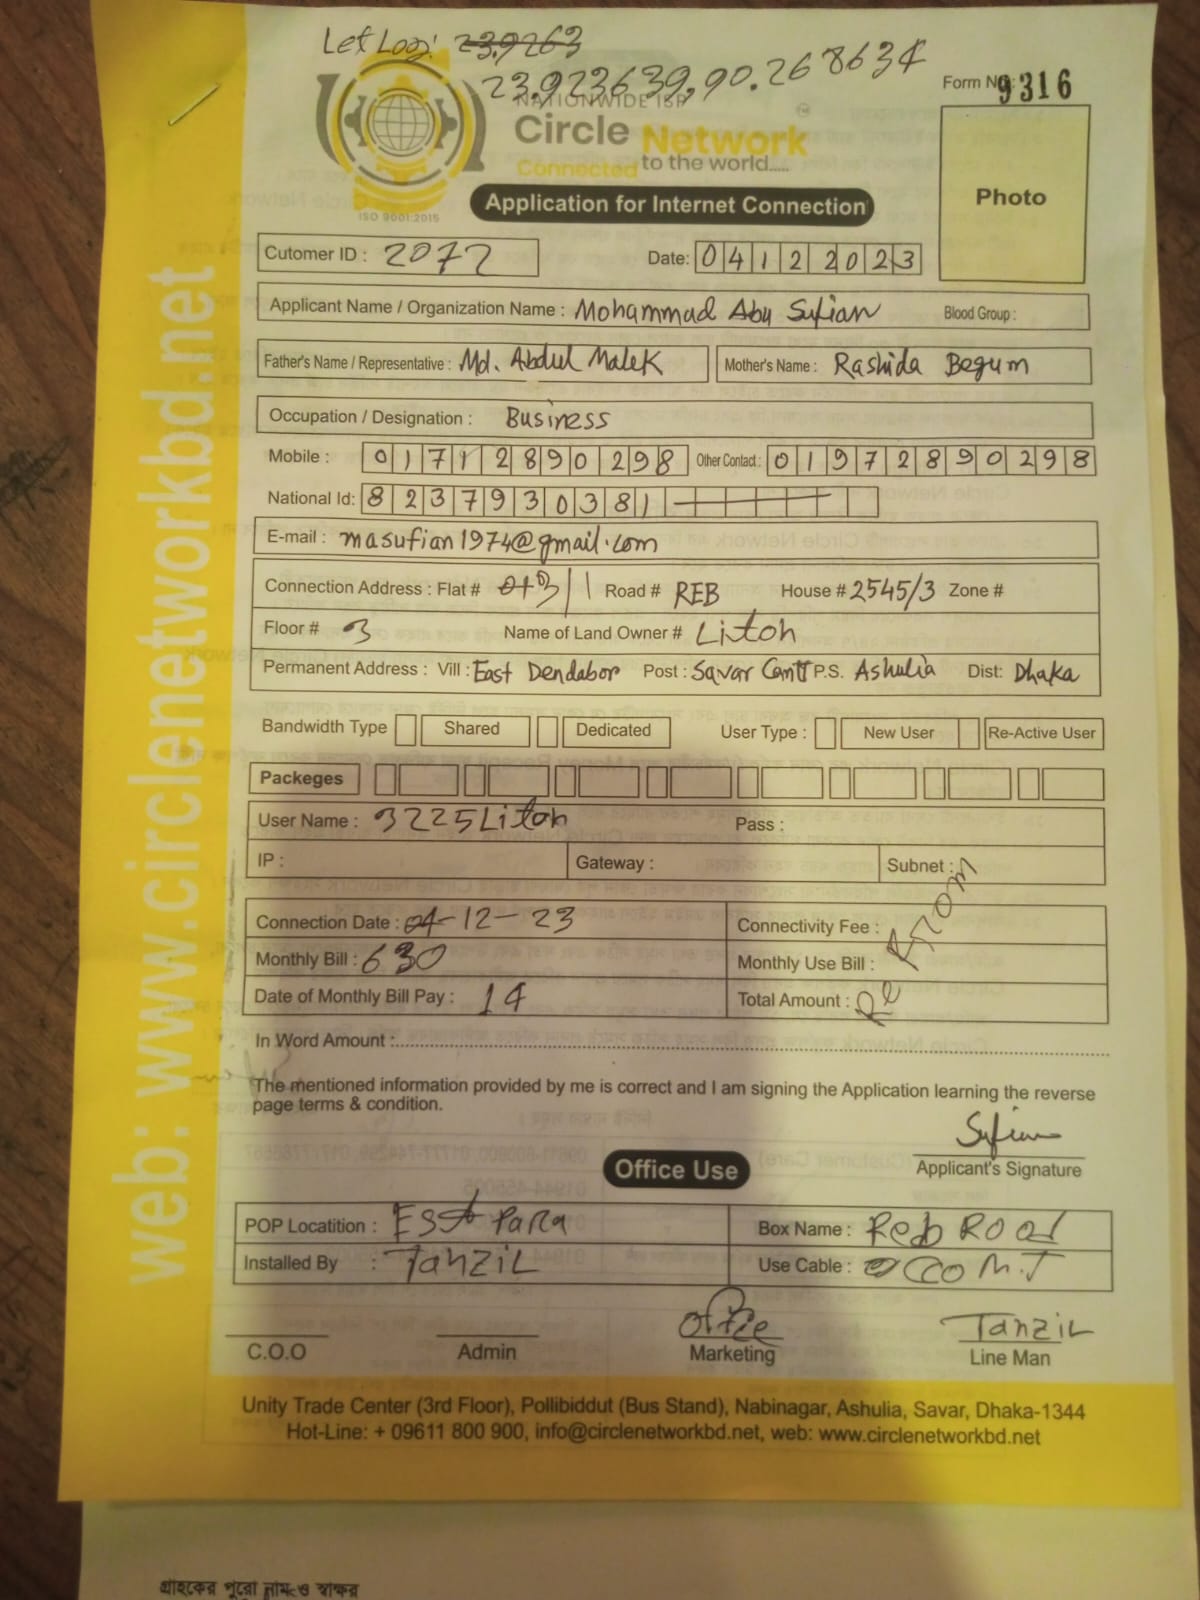 Let Log: 23.9263
23.923639, 90.268634
Form No: 9316
NATIONWIDE ISP
Circle Network
Connected to the world.....
ISO 9001:2015
Photo
Application for Internet Connection
Cutomer ID : 2072 Date: 04122023
Applicant Name / Organization Name : Mohammad Abu Sufian Blood Group :
Father's Name / Representative : Md. Abdul Malek Mother's Name : Rashida Begum
Occupation / Designation : Business
Mobile : 01712890298 Other Contact : 01972890298
National Id: 8237930381
E-mail : masufian1974@gmail.com
Connection Address : Flat # Road # REB House # 2545/3 Zone #
Floor # 3 Name of Land Owner # Litoh
Permanent Address : Vill : East Dendabor Post : Savar Cantt P.S. Ashulia Dist: Dhaka
Bandwidth Type Shared Dedicated User Type : New User Re-Active User
Packeges
User Name : 3225Litoh Pass :
IP : Gateway : Subnet :
Connection Date : 04-12-23 Connectivity Fee :
Monthly Bill : 630 Monthly Use Bill :
Date of Monthly Bill Pay : 14 Total Amount :
In Word Amount :
The mentioned information provided by me is correct and I am signing the Application learning the reverse
page terms & condition.
Sufian
Applicant's Signature
Office Use
POP Locatition : EST PaRa Box Name : Reb ROad
Installed By : TanziL Use Cable :
Office TanziL
C.O.O Admin Marketing Line Man
Unity Trade Center (3rd Floor), Pollibiddut (Bus Stand), Nabinagar, Ashulia, Savar, Dhaka-1344
Hot-Line: + 09611 800 900, info@circlenetworkbd.net, web: www.circlenetworkbd.net
web: www.circlenetworkbd.net
গ্রাহকের পুরো নাম ও স্বাক্ষর